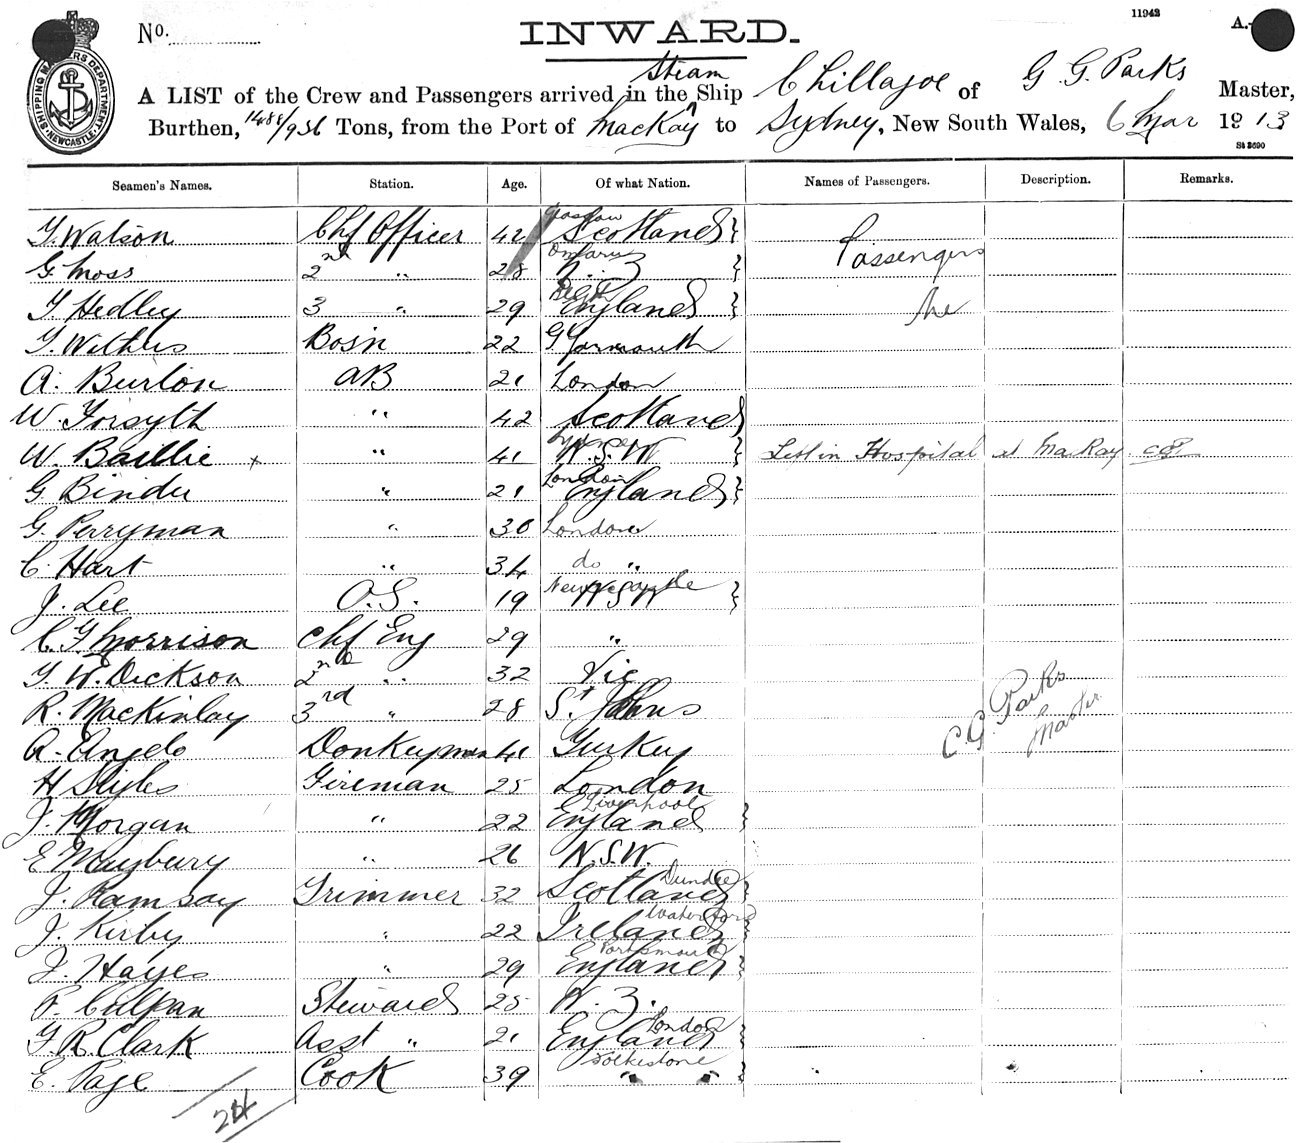 11942
A.-
No.
INWARD.
SHIPPING MASTERS DEPARTMENT NEWCASTLE
Steam
A LIST of the Crew and Passengers arrived in the ^ Ship Chillagoe of G. G. Parks Master,
Burthen, 1488/936 Tons, from the Port of MacKay to Sydney, New South Wales, 6 Mar 1913
St 3690
Seamen's Names. Station. Age. Of what Nation. Names of Passengers. Description. Remarks.
Glasgow
Watson Chf Officer 42 Scotland } Passengers
G. Moss 2nd " 28 N. Z }
Hedley 3 " 29 England } Nil
Bosn 22 G. Yarmouth
A. Burton AB 21 London
W. Forsyth " 42 Scotland
Sydney
W. Baillie x " 41 N.S.W } Left in Hospital at MacKay
London
G. Binder " 21 England }
G. Perryman " 30 London
C. Hart " 34 do "
Newcastle
J. Lee O.S. 19 N S W }
C. F. Morrison Chf Eng 29 "
W. Dickson 2nd " 32 Vic
R. MacKinlay 3rd " 28 St Johns
C. G. Parks
Master
A. Angelo Donkeyman 41 Turkey
H Styles Fireman 25 London
Liverpool
J. Morgan " 22 England }
E Maybury " 26 N.S.W.
Dundee
J. Ramsay Trimmer 32 Scotland }
Waterford
J. Kirby " 22 Ireland }
Portsmouth
J. Hayes " 29 England }
Culpan Steward 25 N. Z.
London
F. R. Clark Asst " 21 England }
Folkestone
E. Page Cook 39 " " }
24